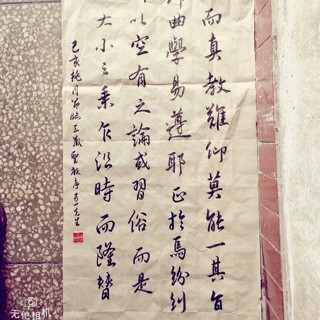 而真教難仰莫能一其旨
曲學易遵耶正於焉紛糾
以空有之論或習俗而是
大小之乘乍沿時而隆替
己亥桃月節臨王羲聖教序
无他相机